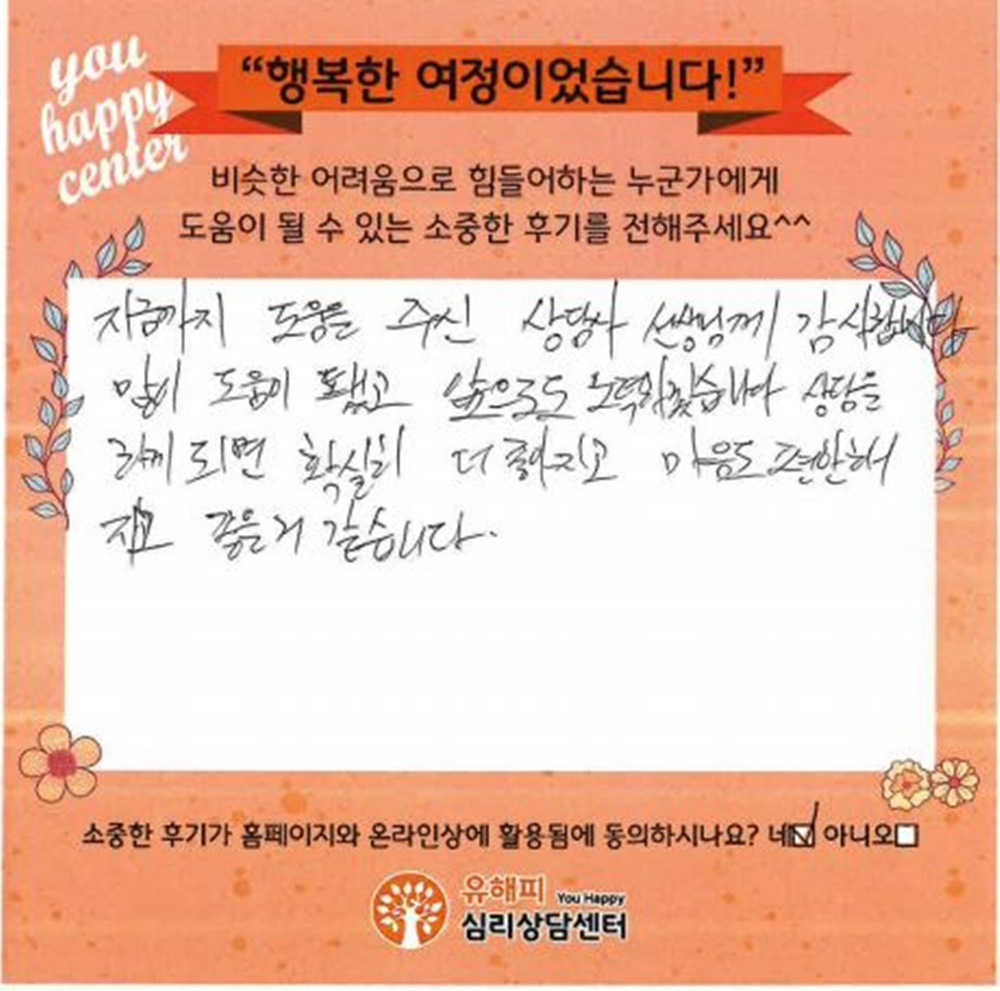 you
happy
center
“행복한 여정이었습니다!”
비슷한 어려움으로 힘들어하는 누군가에게
도움이 될 수 있는 소중한 후기를 전해주세요^^
지금까지 도움을 주신 상담사 선생님께 감사합니다
많이 도움이 됐고 앞으로도 노력하겠습니다 상담을
하게 되면 확실히 더 좋아지고 마음도 편안해서
지고 좋은거 같습니다.
소중한 후기가 홈페이지와 온라인상에 활용됨에 동의하시나요? 네☑ 아니오□
유해피 You Happy
심리상담센터